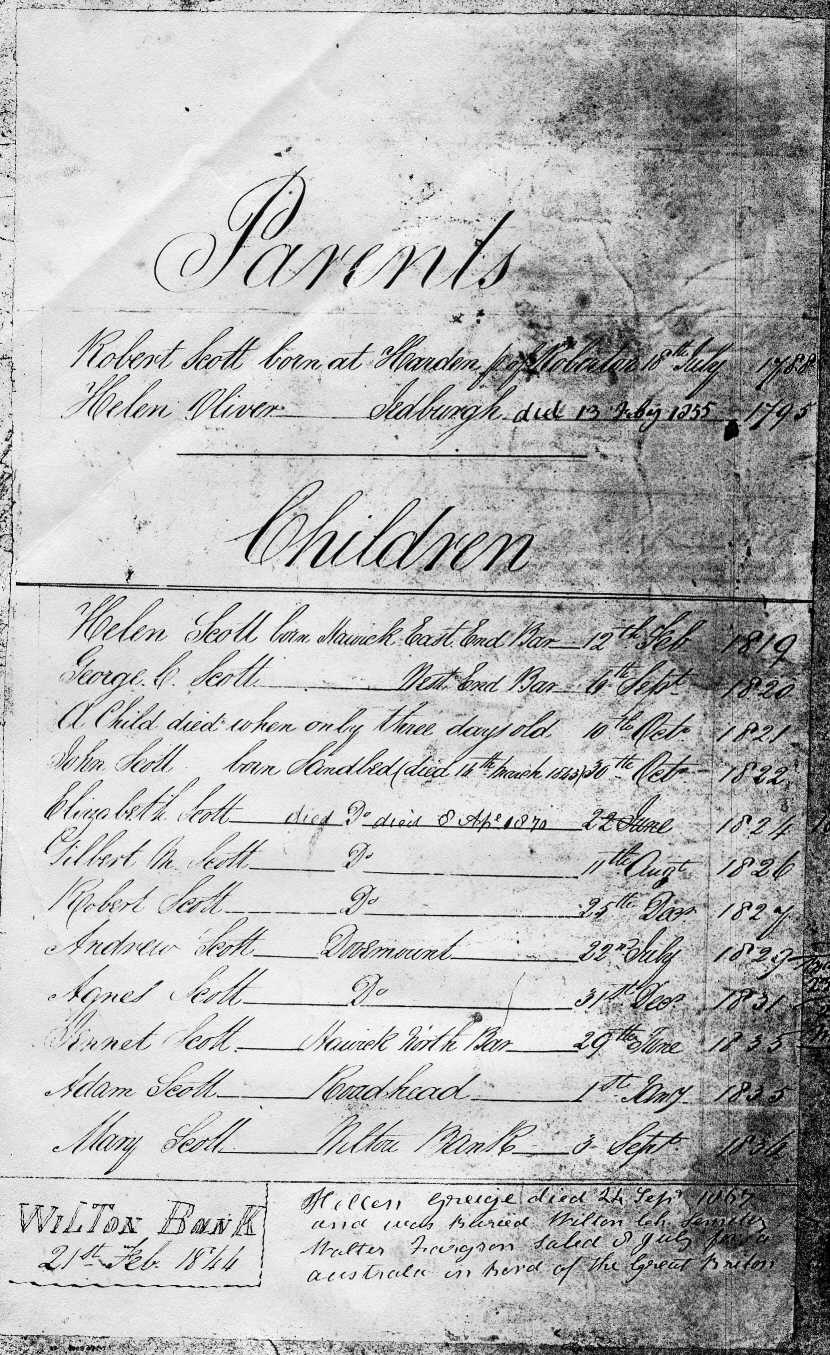 Parents
Robert Scott born at Harden p. of Roberton 18th July 1788
Helen Oliver Jedburgh died 13 Feby 1855 1795
Children
Helen Scott born Hawick East End Bar 12th Feb 1819
George C. Scott West End Bar 6th Sept 1820
A Child died when only three days old 10th Octr 1821
John Scott born Sandbed (died 14th March 1843) 30th Octr 1822
Elizabeth Scott died Do died 8 Ape 1870 22 June 1824
Gilbert M. Scott Do 11th Augt 1826
Robert Scott Do 25th Decr 1827
Andrew Scott Dovemount 22nd July 1829
Agnes Scott Do 31st Decr 1831
Jinnet Scott Hawick North Bar 29th June 1833
Adam Scott Roadhead 1st Jany 1835
Mary Scott Wilton Bank 3 Sept 1836
WILTON BANK
21st Feb. 1844
Hellen Greige died 24 Sepr 1867
and was buried Wilton
Walter Fargson Saled 8 July
australia in bord of the Great Briton